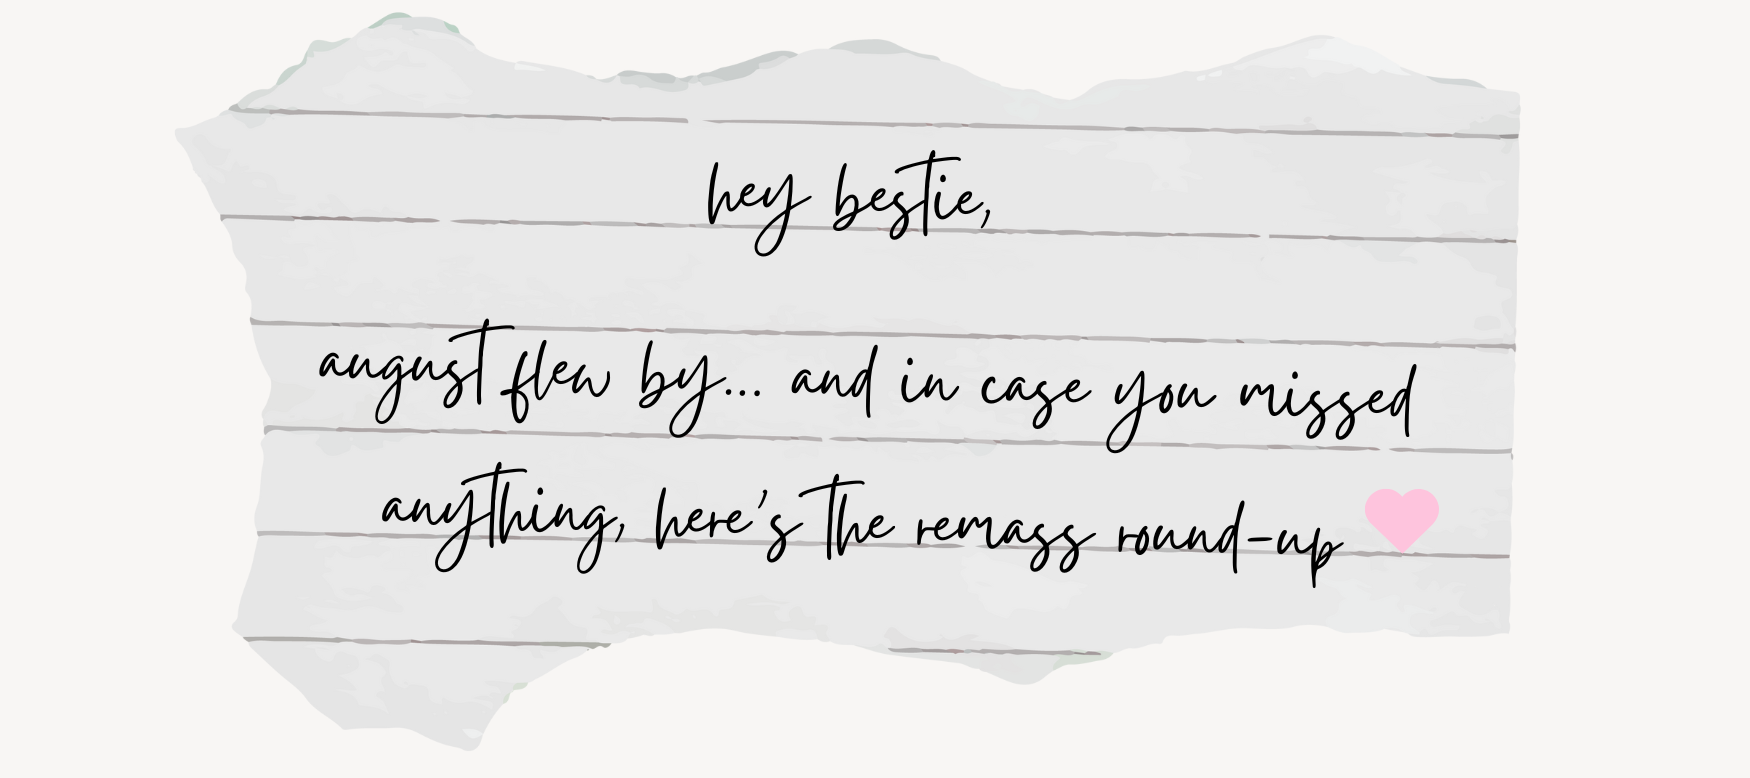 hey bestie,
august flew by... and in case you missed
anything, here's the remass round-up